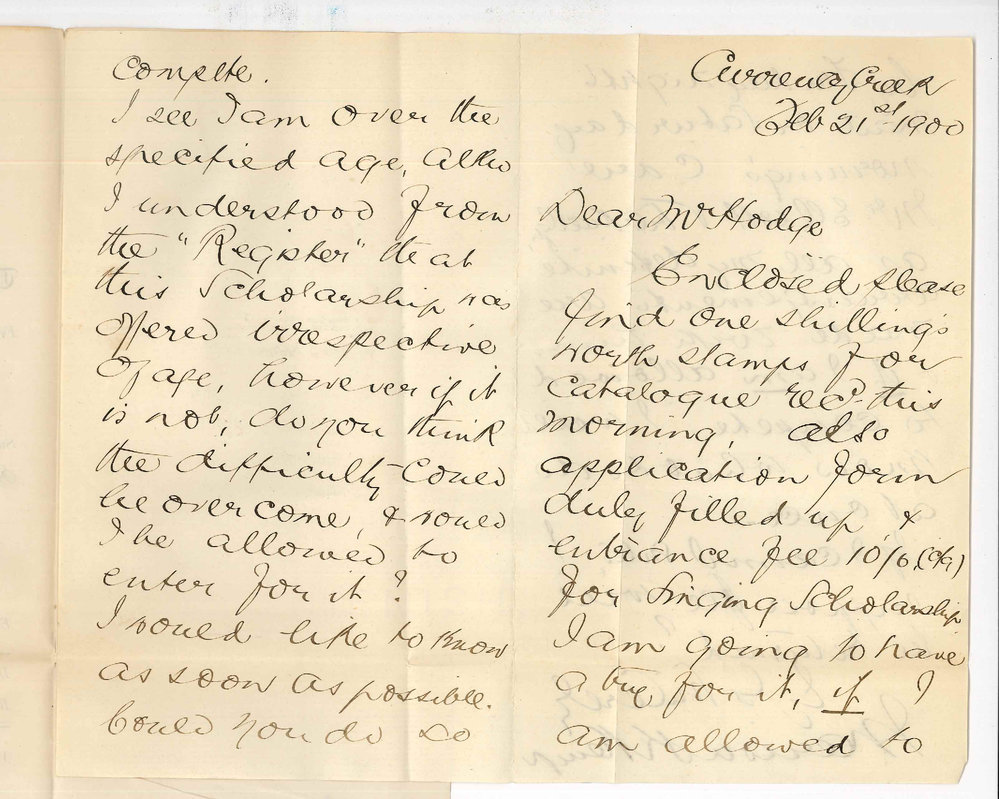 Currency Creek
Feb 21st 1900
Dear Mr Hodge
Enclosed please
find one shilling's
worth stamps for
catalogue recd. this
morning, also
application form
duly filled up &
entrance fee 10/6
for Singing Scholarship
I am going to have
a try for it, if I
am allowed to
complete.
I see I am over the
specified age, altho
I understood from
the "Register" that
this Scholarship was
offered irrespective
of age, however if it
is not, do you think
the difficulty could
be over come, & would
I be allowed to
enter for it?
I would like to know
as soon as possible.
Could you do so